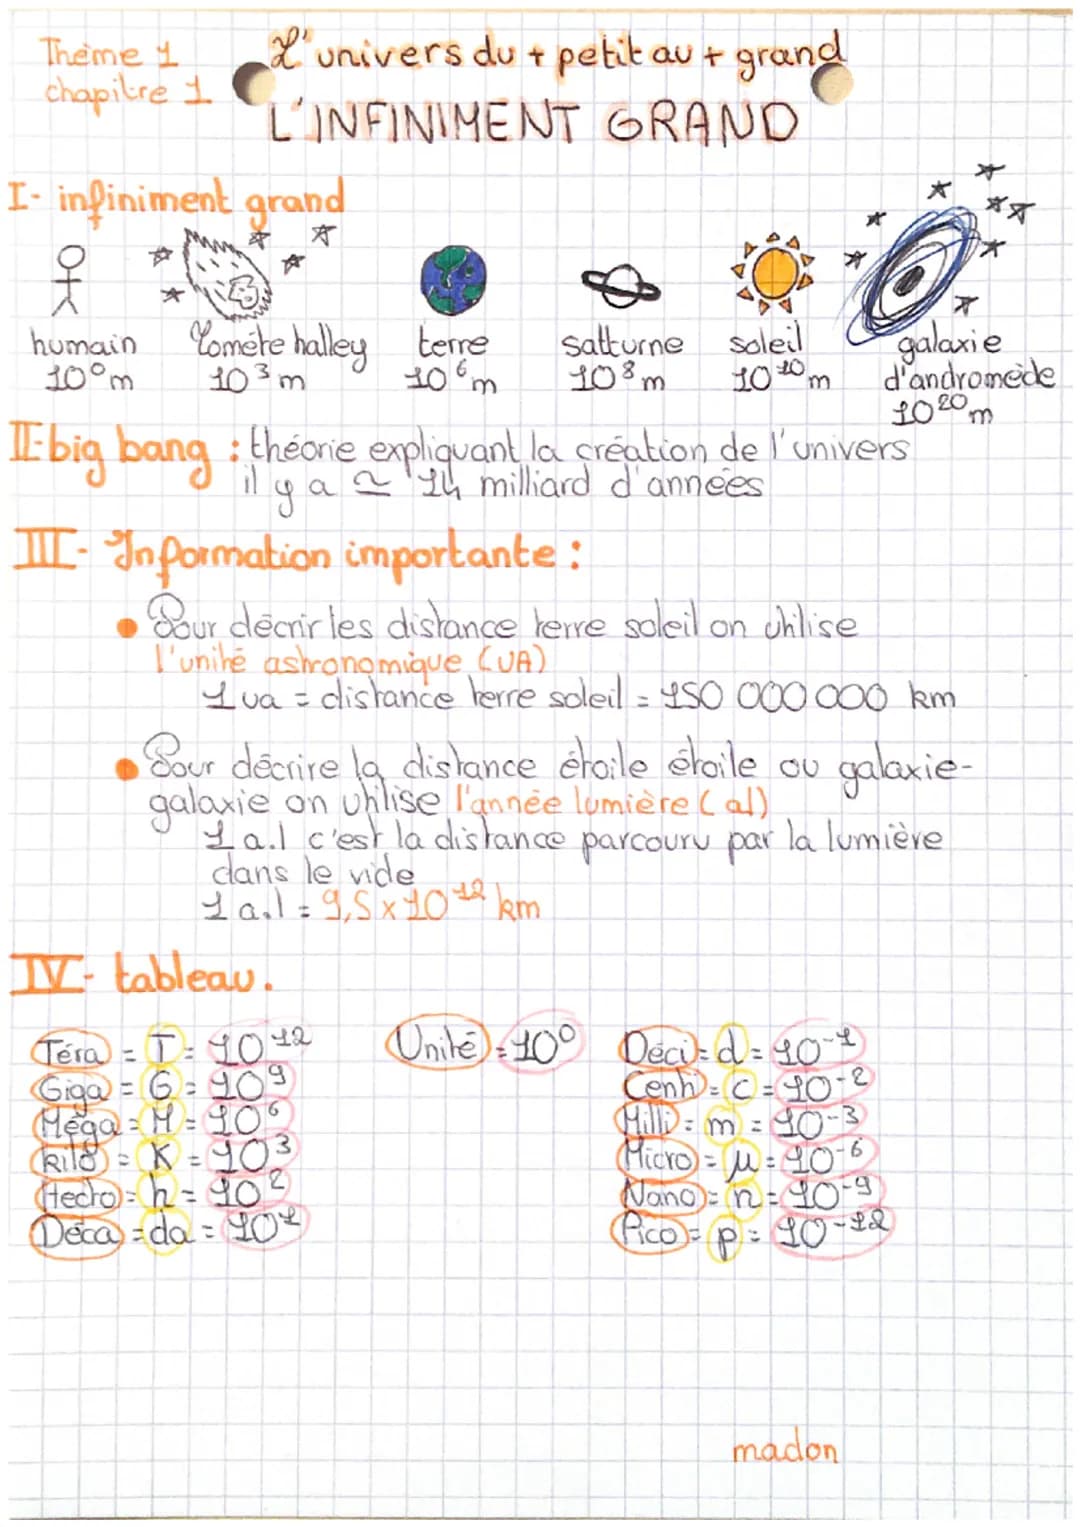 Thème 1
L'univers du + petit au + grand
chapitre 1
L'INFINIMENT GRAND
I- infiniment grand
humain
10⁰m
Comète halley
10³m
terre
10⁶m
satturne
10⁸m
soleil
10¹⁰m
galaxie
d'andromède
10²⁰m
II-big bang : théorie expliquant la création de l'univers
il y a ≃ 14 milliard d'années
III- Information importante :
Pour décrir les distance terre soleil on utilise
l'unité astronomique (UA)
1 ua = distance terre soleil = 150 000 000 km
Pour décrire la distance étoile étoile ou galaxie-
galaxie on utilise l'année lumière (al)
1 a.l c'est la distance parcouru par la lumière
dans le vide
1 a.l = 9,5 x 10¹² km
IV- tableau.
Téra = T = 10¹²
Giga = G = 10⁹
Méga = M = 10⁶
kilo = K = 10³
Hecto = h = 10²
Déca = da = 10¹
Unité = 10⁰
Déci = d = 10⁻¹
Centi = c = 10⁻²
Milli = m = 10⁻³
Micro = µ = 10⁻⁶
Nano = n = 10⁻⁹
Pico = p = 10⁻¹²
madon